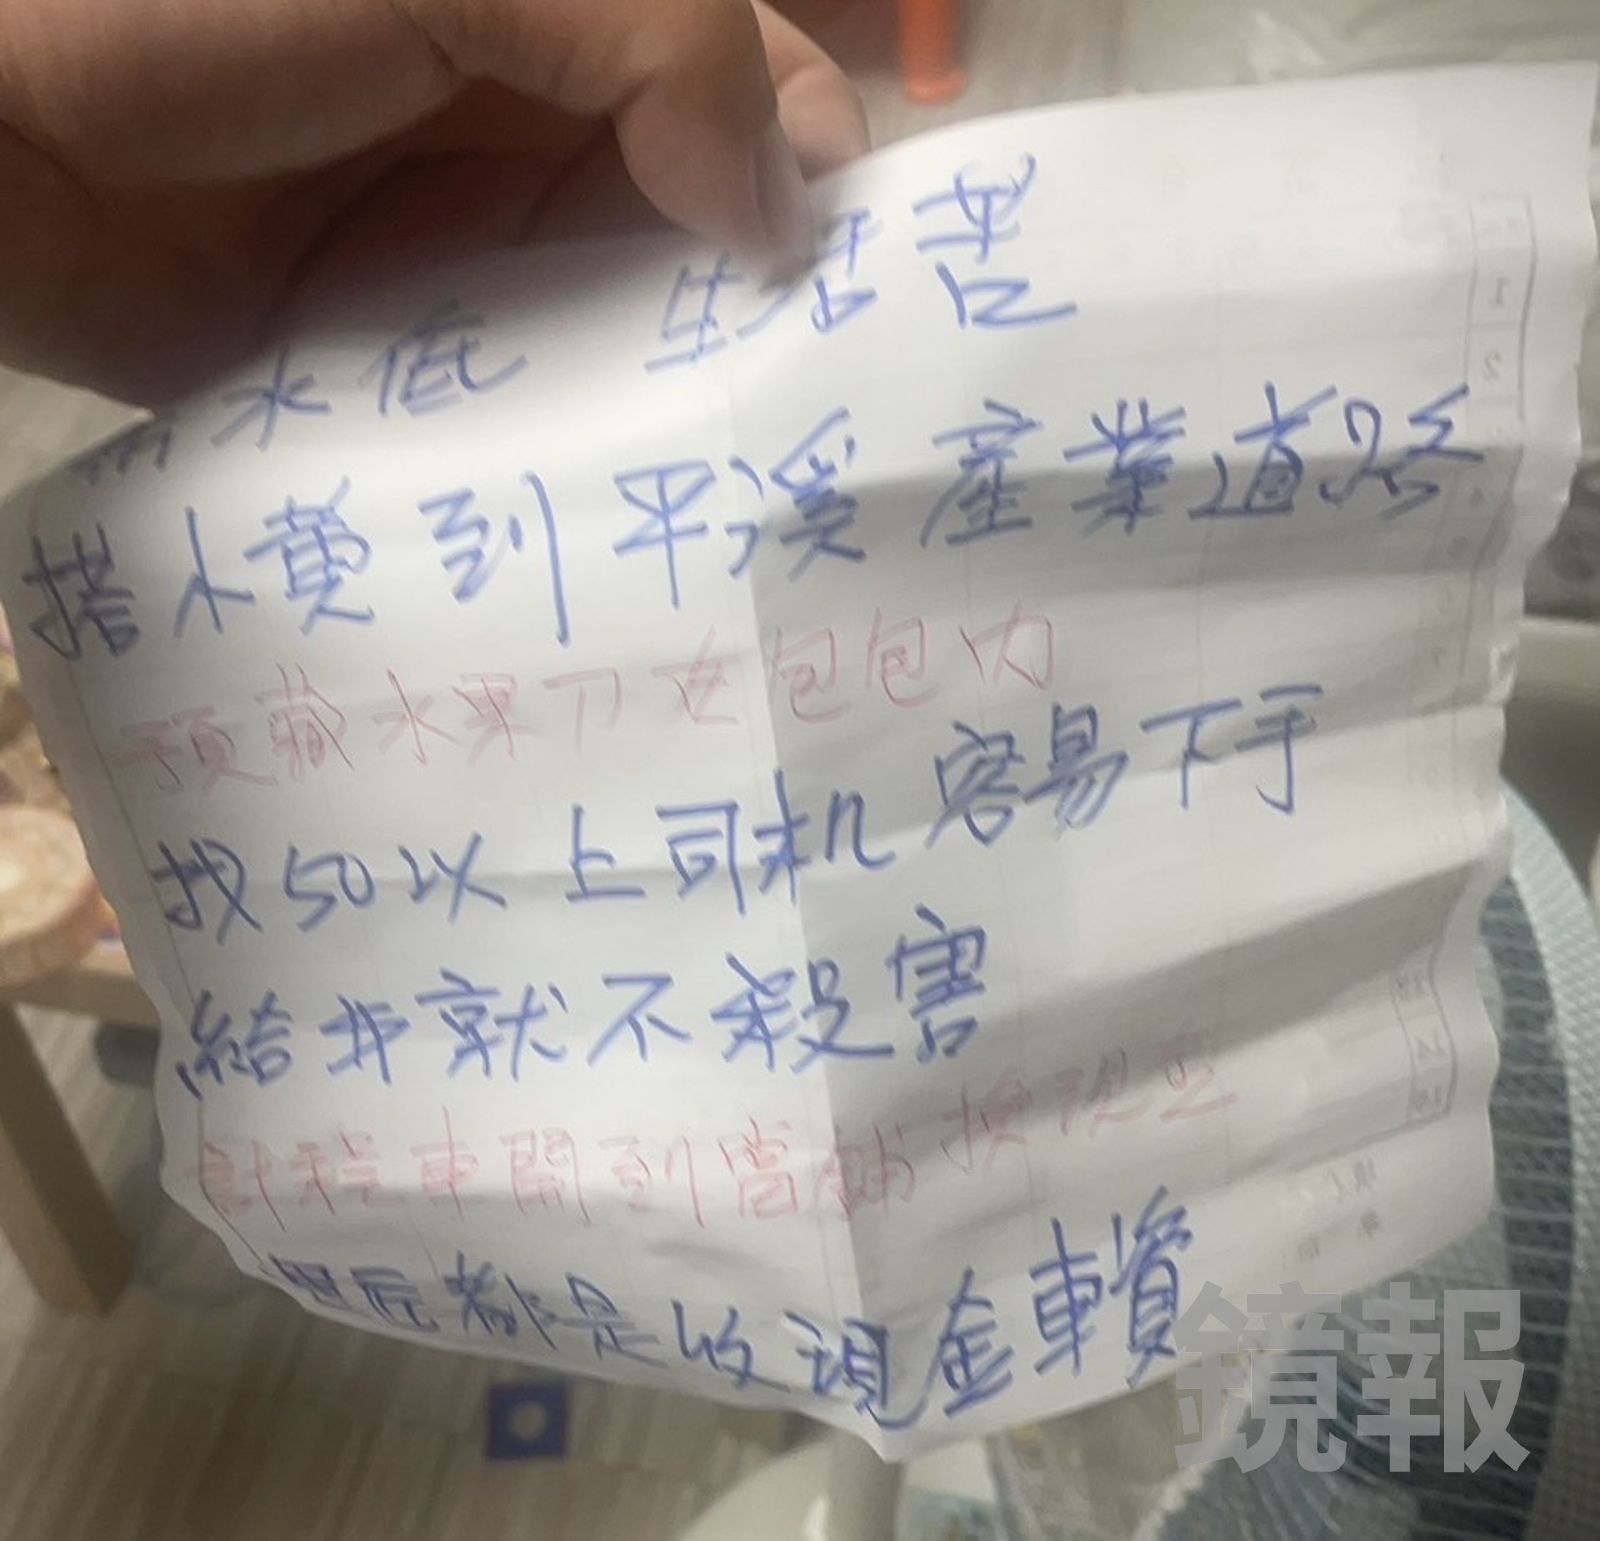 水底 生活苦
搭小黃到平溪產業道路
預藏水果刀在包包內
找50以上司机容易下手
結井就不殺害
計程車開到當舖換現金
都是收現金車資
鏡報